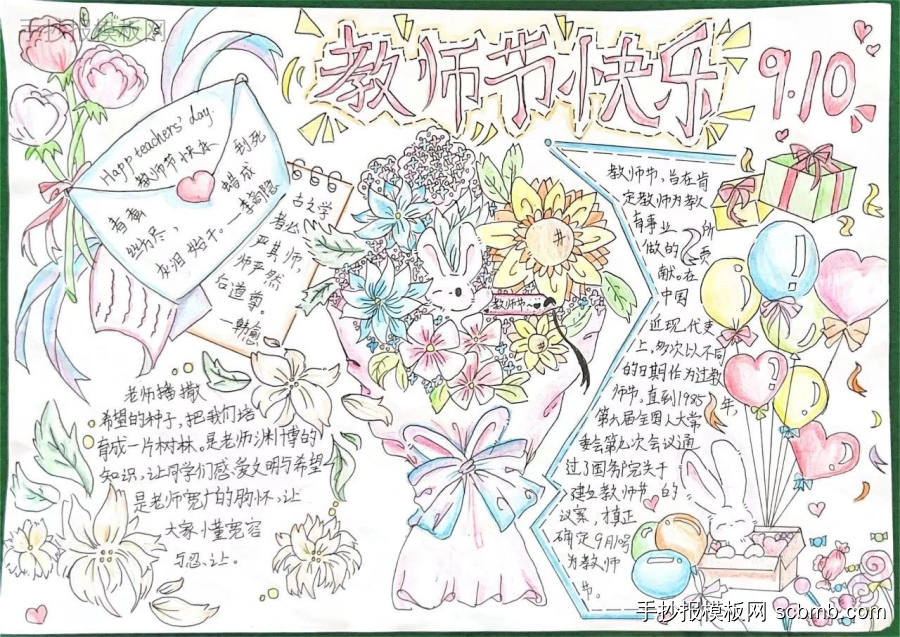 手抄报模板网
教师节快乐
9.10
Happ teachers' day.
教师节快乐
春蚕
到死
丝方尽,
蜡
成
李商隐
古之学
者必
严其师,
师严然
后道尊。
教师节~
老师播撒
希望的种子,把我们培
育成一片树林。是老师渊博的
知识,让同学们感受文明与希望
是老师宽广的胸怀,让
大家懂宽容
与忍让。
教师节,旨在肯
定教师为教
育事业所
做的贡
献。在
中国
近现代史
上,多次以不同
的日期作为过教
师节。直到1985年,
第六届全国人大常
委会第九次会议通
过了国务院关于
建立教师节的
议案,
确定9月10号
为教师
节。
手抄报模板网 scbmb.com